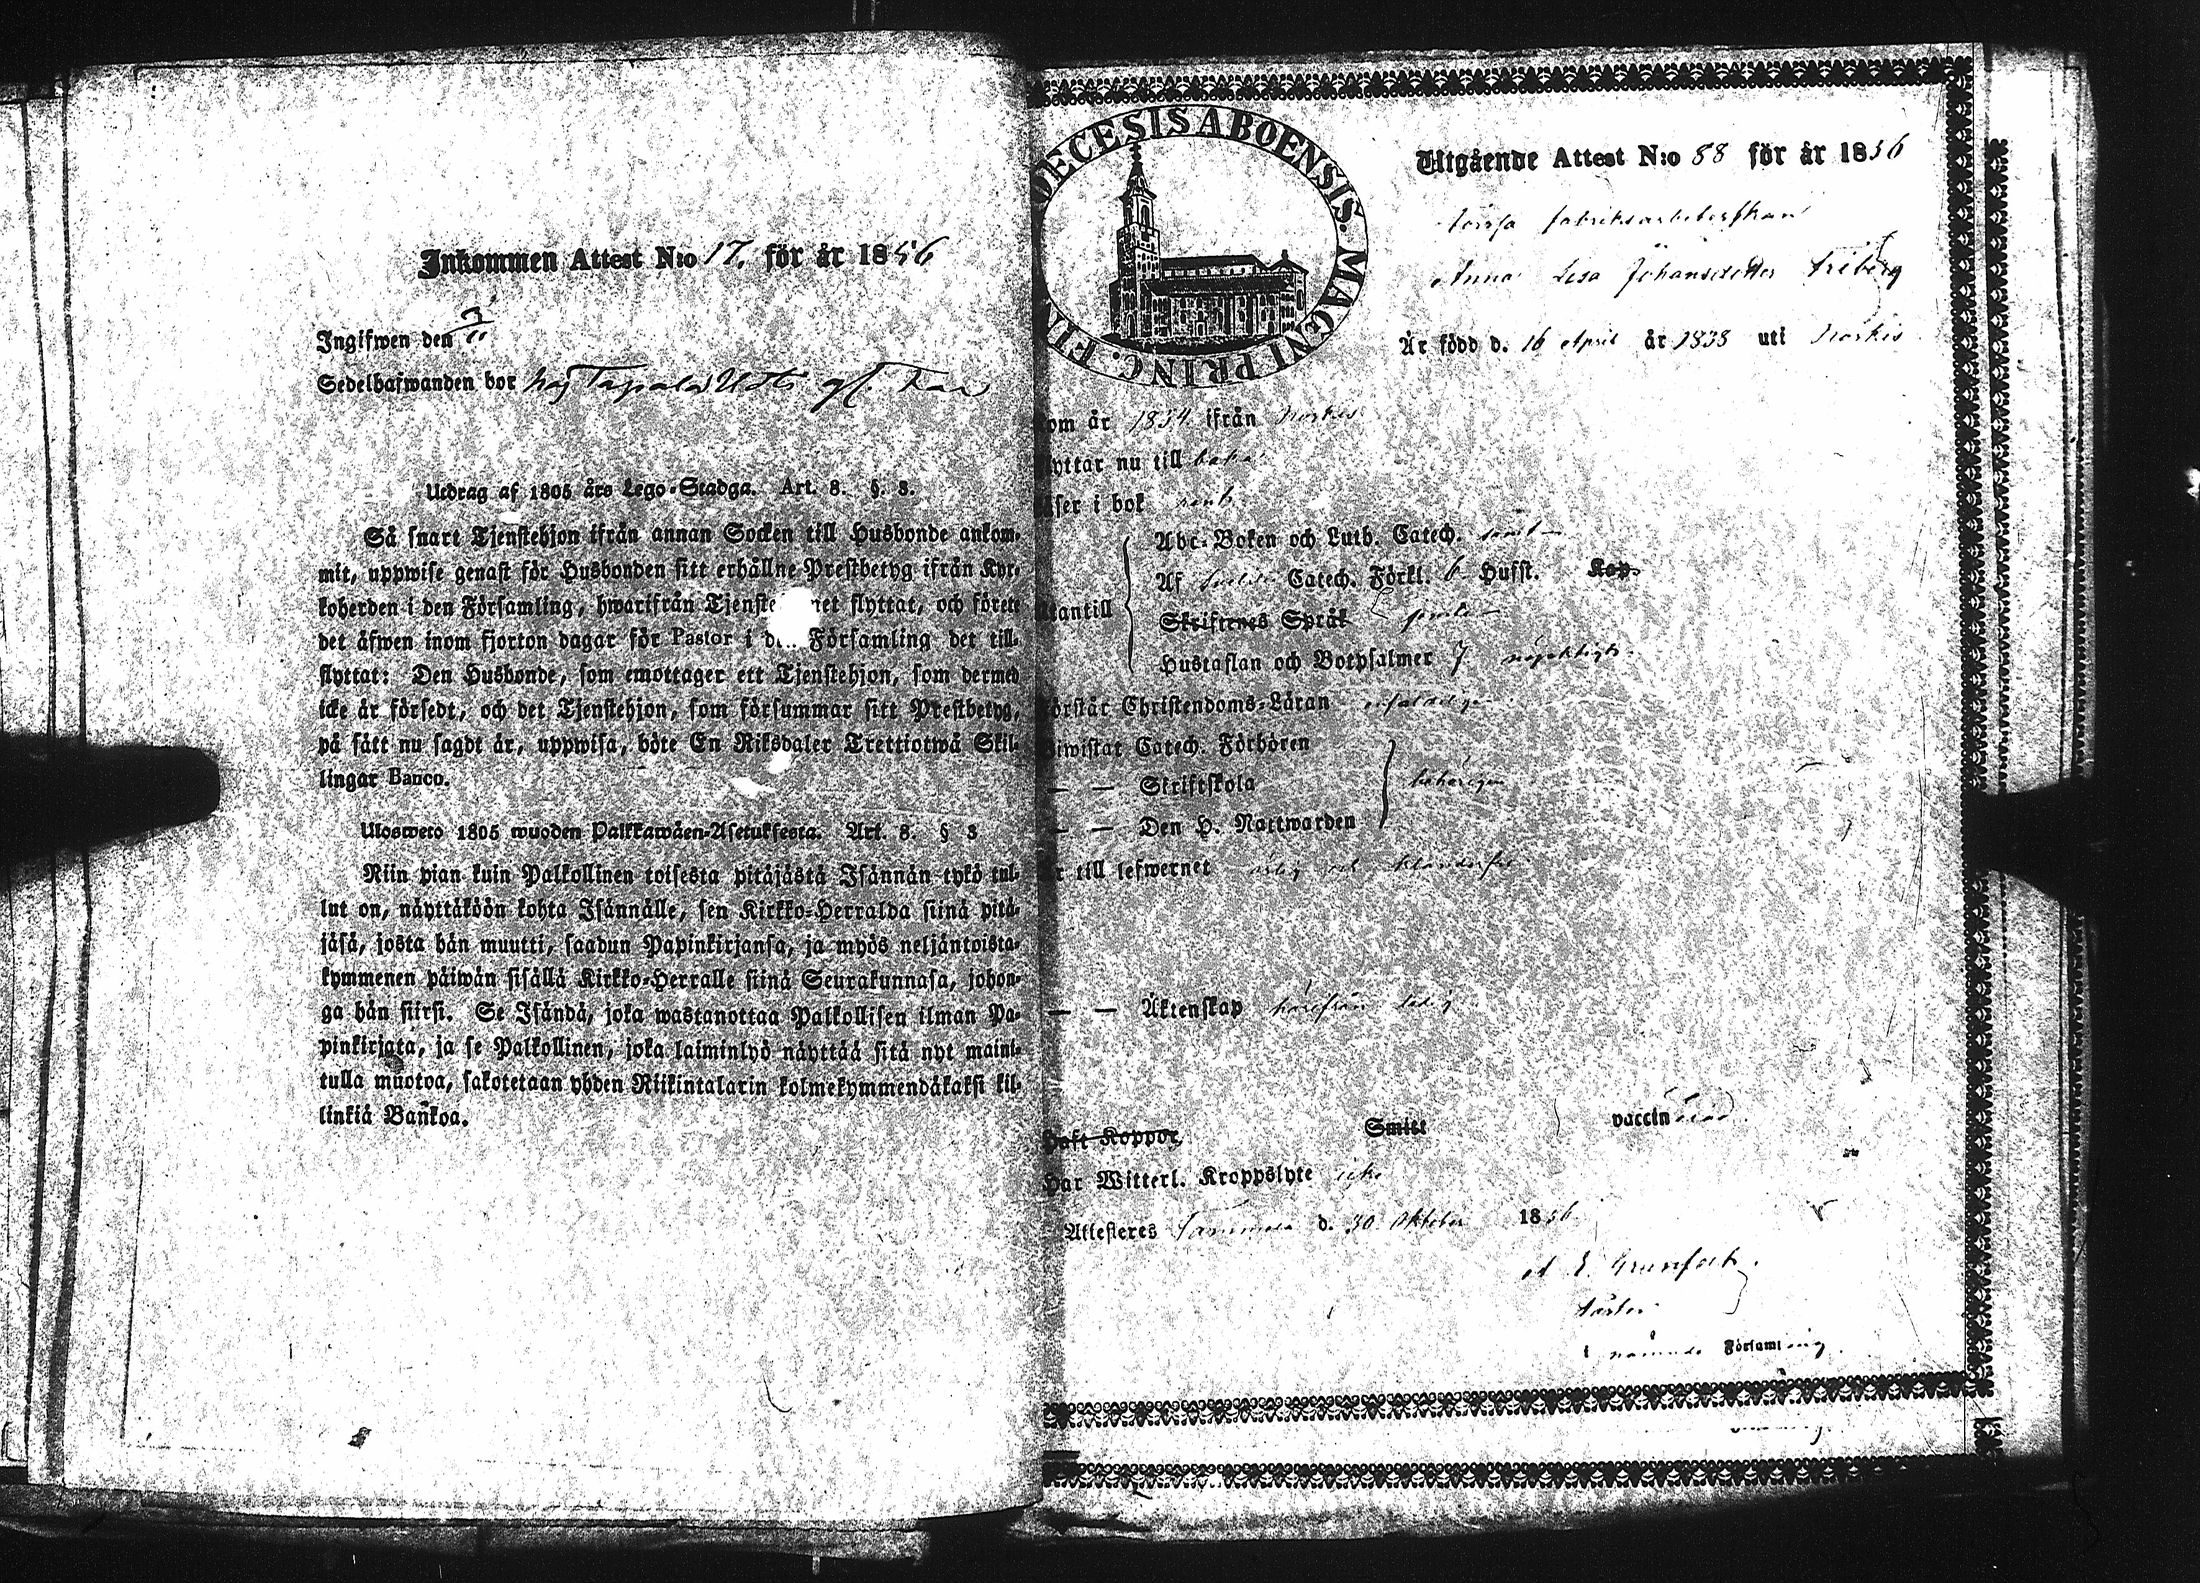 Inkommen Attest N:o 17. för år 1856
Ingifwen den 3/11
Sedelhafwanden bor hos
Utdrag af 1805 års Lego-Stadga. Art. 8. §. 3.
Så snart Tjenstehjon ifrån annan Socken till Husbonde ankom-
mit, uppwise genast för Husbonden sitt erhållne Prestbetyg ifrån Kyr-
koherden i den Församling, hwarifrån Tjenste net flyttat, och förete
det äfwen inom fjorton dagar för Pastor i d Församling det till-
flyttat: Den Husbonde, som emottager ett Tjenstehjon, som dermed
icke är försedt, och det Tjenstehjon, som försummar sitt Prestbetyg,
på sätt nu sagdt är, uppwisa, böte En Riksdaler Trettiotwå Skil-
lingar Banco.
Ulosweto 1805 wuoden Palkkawäen-Asetuksesta. Art. 8. § 3
Niin pian kuin Palkollinen toisesta pitäjästä Isännän tykö tul-
lut on, näyttäköön kohta Isännälle, sen Kirkko-Herralda siinä pitä-
jäsä, josta hän muutti, saadun Papinkirjansa, ja myös neljäntoista-
kymmenen päiwän sisällä Kirkko-Herralle siinä Seurakunnasa, johon-
ga hän siirsi. Se Isändä, joka wastanottaa Palkollisen ilman Pa-
pinkirjata, ja se Palkollinen, joka laiminlyö näyttää sitä nyt maini-
tulla muotoa, sakotetaan yhden Riikintalarin kolmekymmendäkaksi kil-
linkiä Bankoa.
DECESIS ABOENSIS. MAGNI PRINC. FIN
Utgående Attest N:o 88 för år 1856
fabriksarbeterskan
Anna Lisa Johansdotter Friberg
Är född d. 16 April år 1838 uti Koskis
om år 1834 ifrån Koskis
lyttar nu till
äser i bok rent
Abc-Boken och Luth. Catech. samt
Af Svebilii Catech. Förkl. 6 Hufst. Kap.
utantill
Skriftenes Språk
Hustaflan och Botpsalmer 7 nöjaktigt
örstår Christendoms-Läran enfaldigt
iwistat Catech. Förhören
— — Skriftskola behörigen
— — Den H. Nattwarden
r till lefwernet ärlig och klanderfri
— — Äktenskap härifrån ledig
Haft Koppor, Smitt vaccinerad
Har Witterl. Kroppslyte icke
Attesteres Tammela d. 30 Oktober 1856
i nämnde Församling